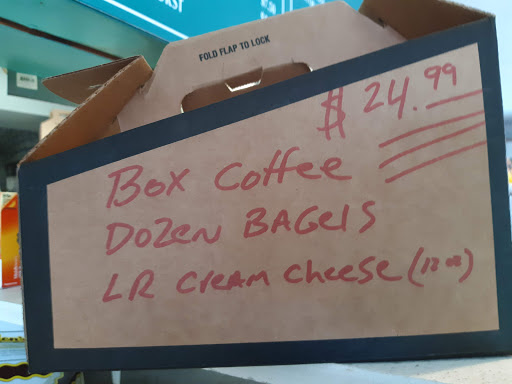 FOLD FLAP TO LOCK
$ 24.99
Box Coffee
Dozen BAGels
LR Cream Cheese (12 oz)